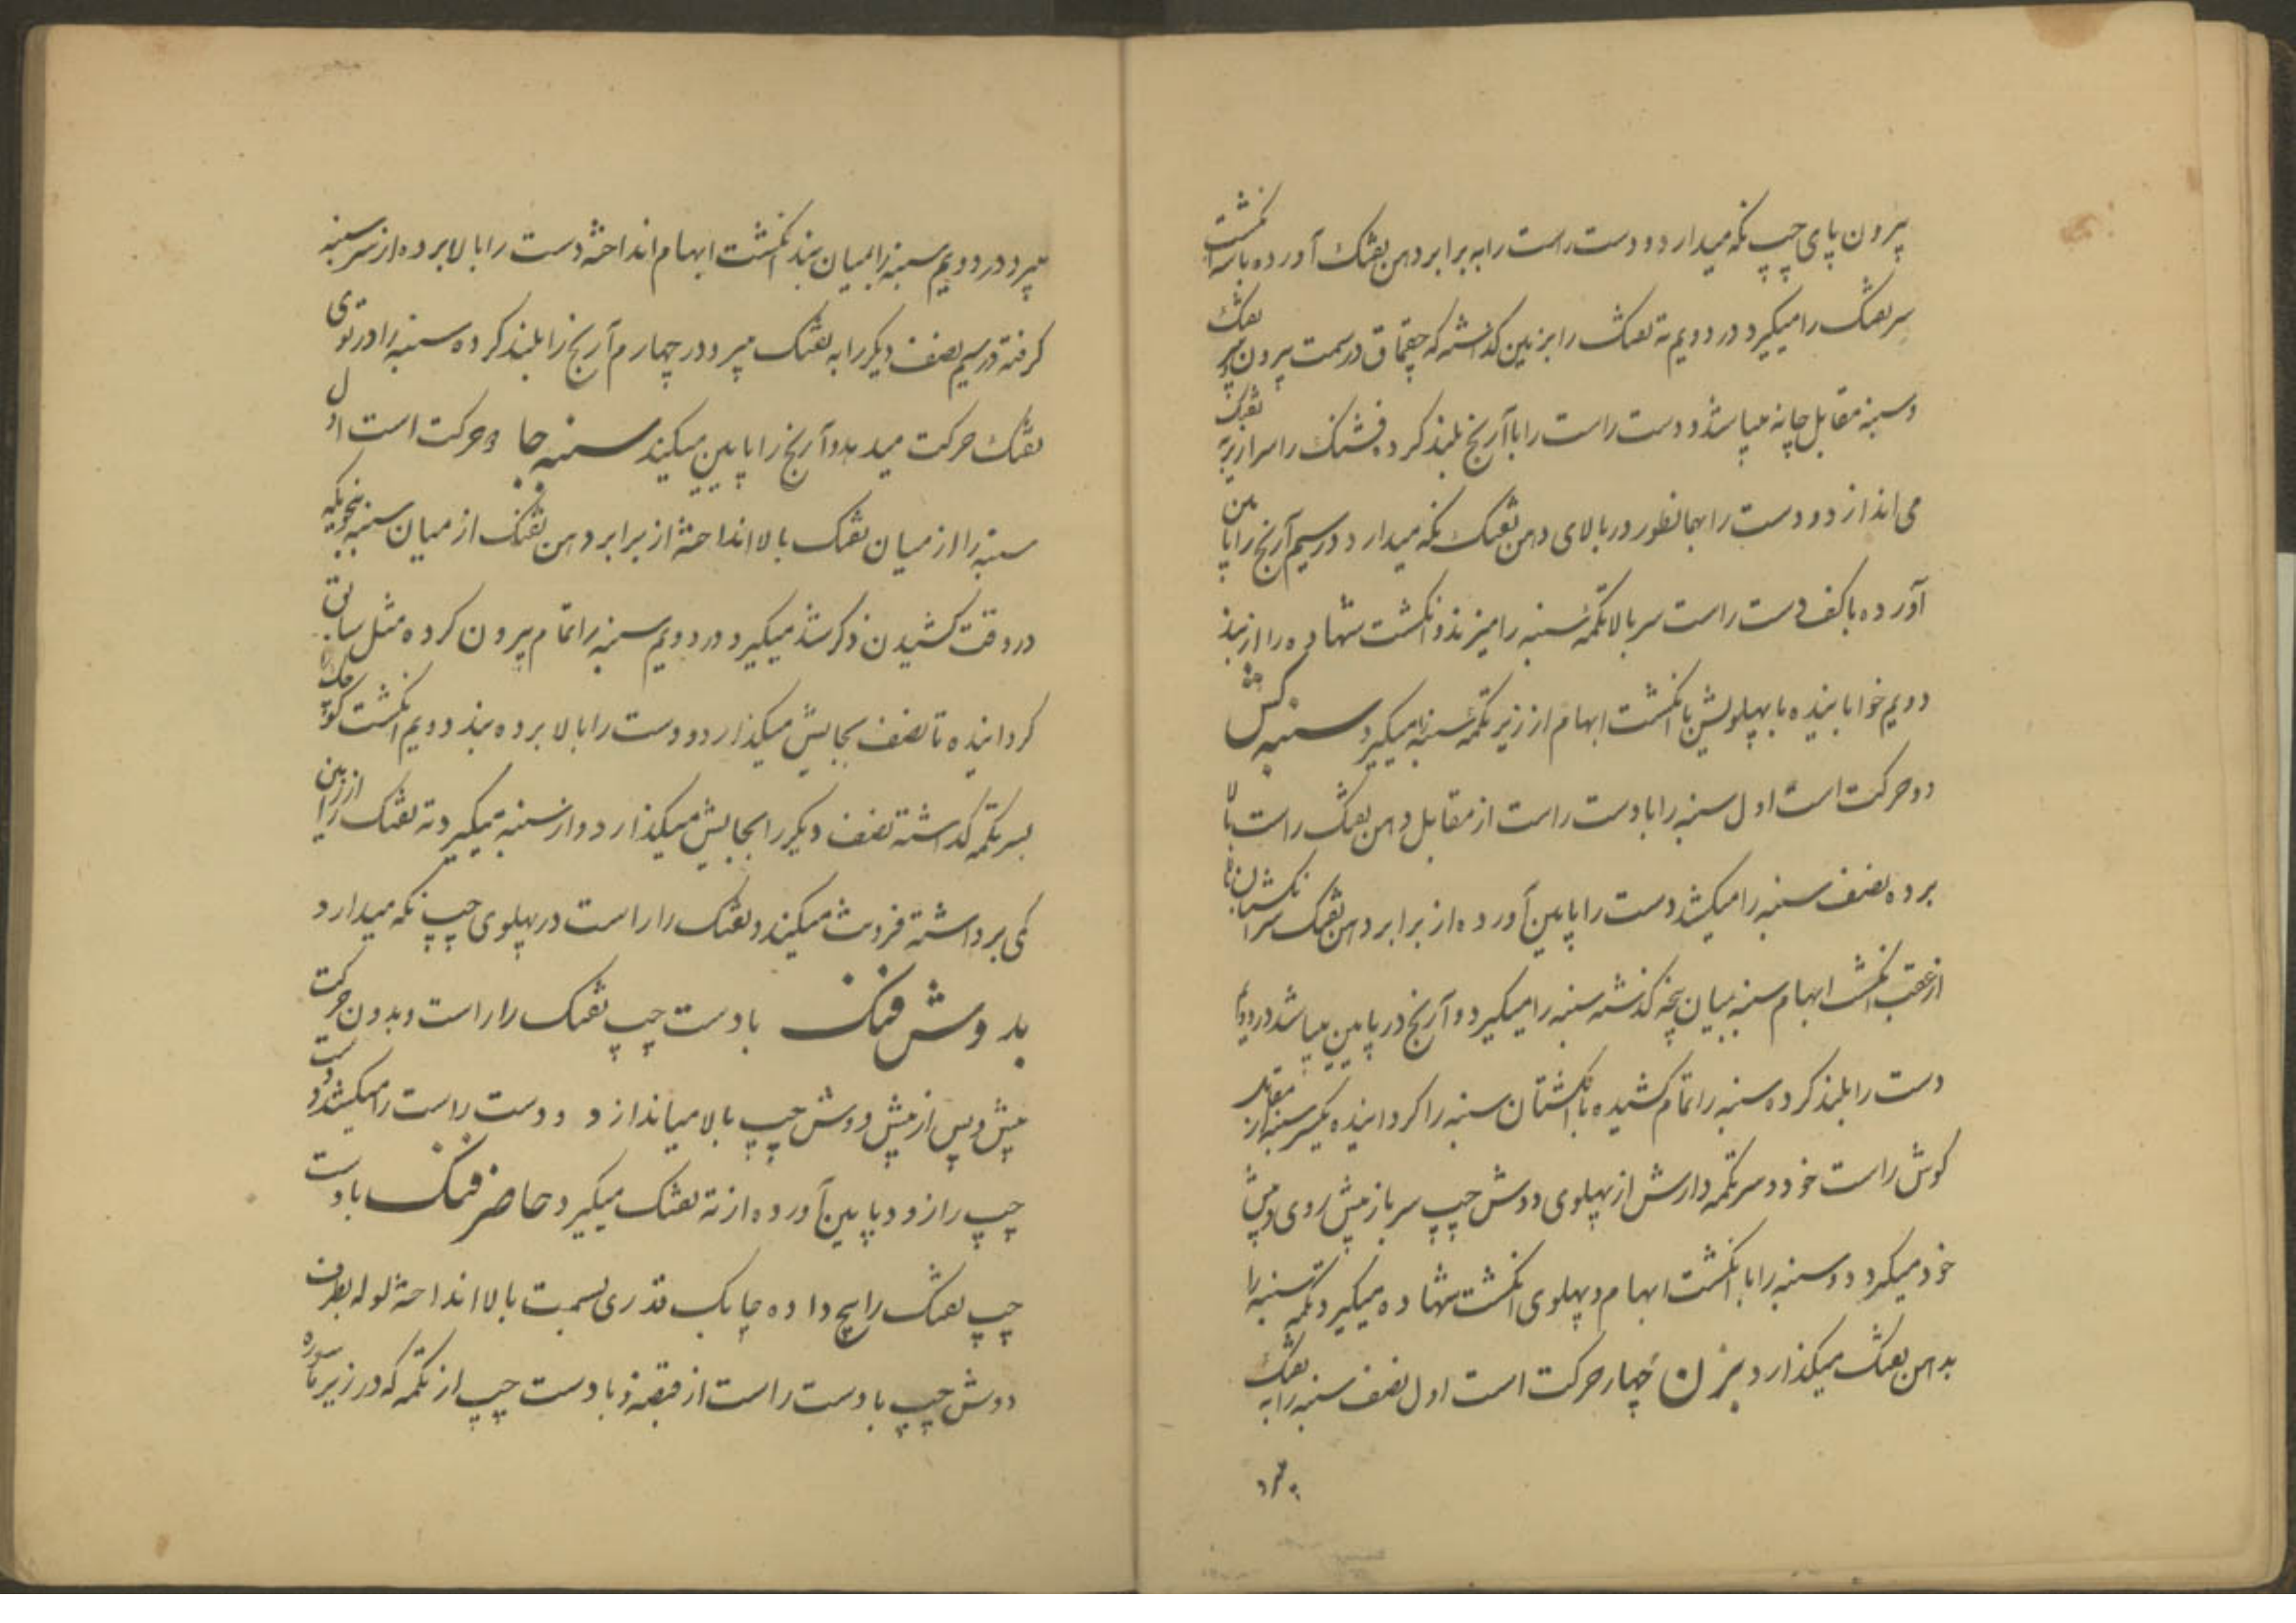 بیرون پای چپ نکه میدارد و دست راست را به برابر دهن تفنک آورده با سه انکشت
سر تفنک را میکیرد در دویم ته تفنک را بزمین کذاشته که چقماق در سمت بیرون سر تفنک
و سنبه مقابل چانه میباشد و دست راست را با آرنج بلند کرده فشنک را سرازیر به تفنک
می اندازد و دست را بهمانطور در بالای دهن تفنک نکه میدارد در سیم آرنج را پایین
آورده با کف دست راست سر بالا تکمهٔ سنبه را میزند و انکشت شهاده را از بند
دویم خوابانیده با پهلویش با انکشت ابهام از زیر تکمهٔ سنبه را میکیرد سنبه کش
دو حرکت است اول سنبه را با دست راست از مقابل دهن تفنک راست بالا
برده نصف سنبه را میکشد دست را پایین آورده از برابر دهن تفنک سر انکشتان با
از عقب انکشت ابهام سنبه میان پنجه کذشته سنبه را میکیرد و آرنج در پایین میباشد در دویم
دست را بلند کرده سنبه را تمام کشیده با انکشتان سنبه را کردانیده یکسر سنبه از مقابل
کوش راست خود و سر تکمه دارش از پهلوی دوش چپ سرباز پیش روی پیش
خود میکیرد و سنبه را با انکشت ابهام و پهلوی انکشت شهاده میکیرد تکمه سنبه را
بدهن تفنک میکذارد بزن چهار حرکت است اول نصف سنبه را به تفنک
میبرد
میبرد در دویم سنبه را بمیان بند انکشت ابهام انداخته دست را بالا برده از سر سنبه
کرفته در سیم نصف دیکر را به تفنک میبرد در چهارم آرنج را بلند کرده سنبه را در توی
تفنک حرکت میدهد و آرنج را پایین میکند سنبه جا دو حرکت است اول
سنبه را از میان تفنک بالا انداخته از برابر دهن تفنک از میان سنبه بنحویکه
در وقت کشیدن ذکر شد میکیرد در دویم سنبه را تمام بیرون کرده مثل سابق
کردانیده تا نصف بجایش میکذارد و دست را بالا برده بند دویم انکشت کوچک
بسر تکمه کذاشته نصف دیکر را بجایش میکذارد و از سنبه میکیرد ته تفنک را از زمین
کمی برداشته فروت میکند و تفنک را راست در پهلوی چپ نکه میدارد
بدوش فنک با دست چپ تفنک را راست و بدون حرکت
پیش و پس از پیش دوش چپ بالا میاندازد و دست راست را میکشد و دست
چپ را زود پایین آورده از ته تفنک میکیرد حاضر فنک با دست
چپ تفنک را پیچ داده چابک قدری بسمت بالا انداخته لوله بطرف
دوش چپ با دست راست از قبضه و با دست چپ از تکمه که در زیر